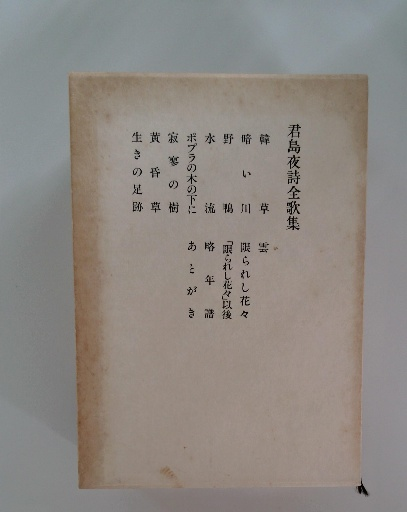 君島夜詩全歌集
韓草
雲
暗い川
限られし花々
野鴨
「限られし花々」以後
水流
略年譜
ポプラの木の下に
あとがき
寂寥の樹
黄昏草
生きの足跡